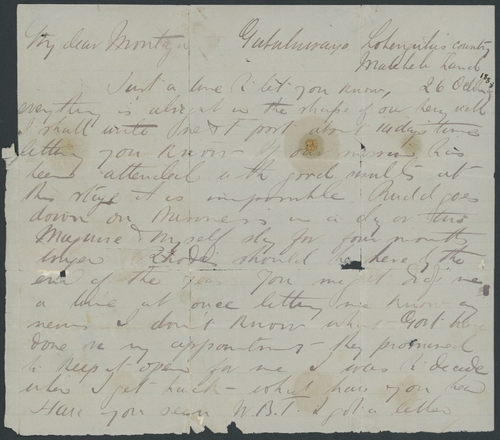 My dear Montagu Gubuluwayo Lobengula's country
Matabele Land
Just a line to let you know, 26 Oct
everything is alright in the shape of our being well
I shall write next post about 14 days time
letting you know if our mission has
been attended with good results at
this stage it is impossible Rudd goes
down on Business in a day or two
Maguire & myself stay for four months
longer Rhodes should be here by the
end of the year You might drop me
a line at once letting me know any
news I don't know what Govt have
done in my appointment - they promised
to keep it open for me I was to decide
when I get back - what have you been
Have you seen N.B.T. I got a letter